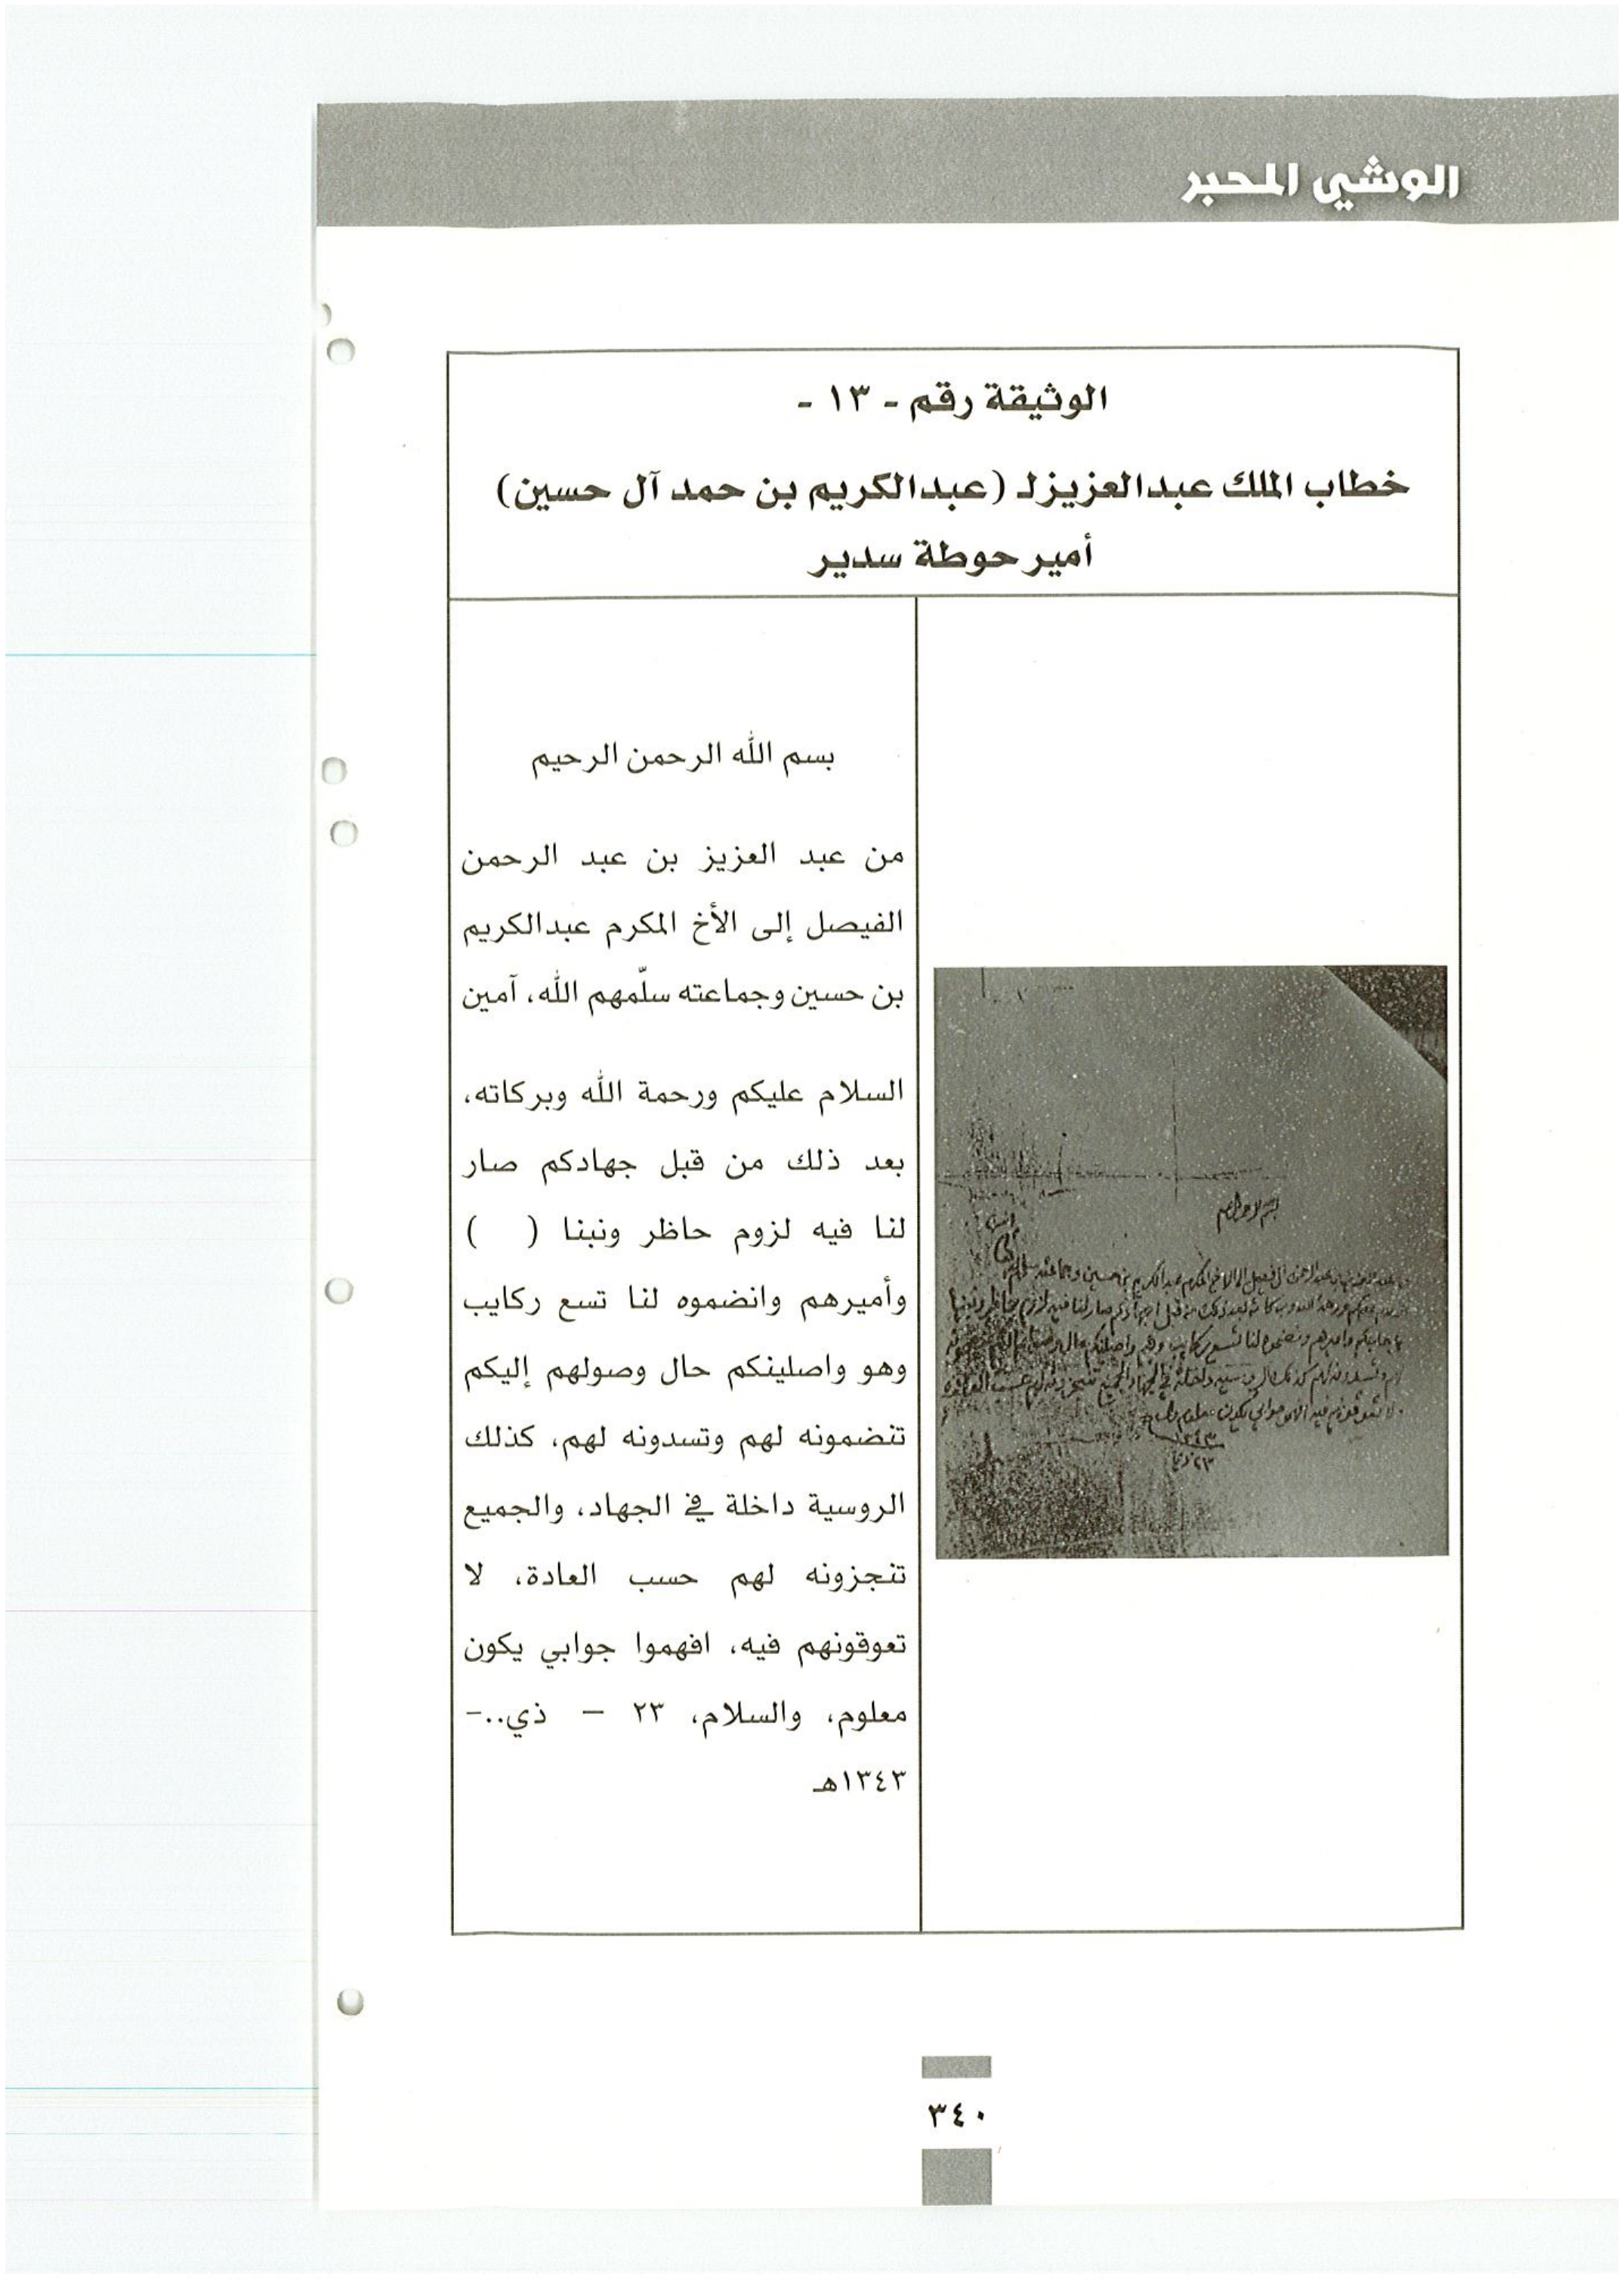 الوشي المحبر
الوثيقة رقم - ١٣ -
خطاب الملك عبدالعزيز لـ (عبدالكريم بن حمد آل حسين)
أمير حوطة سدير
بسم الله الرحمن الرحيم
من عبد العزيز بن عبد الرحمن
الفيصل إلى الأخ المكرم عبدالكريم
بن حسين وجماعته سلّمهم الله، آمين
السلام عليكم ورحمة الله وبركاته،
بعد ذلك من قبل جهادكم صار
لنا فيه لزوم حاظر ونبنا ( )
وأميرهم وانضموه لنا تسع ركايب
وهو واصلينكم حال وصولهم إليكم
تنضمونه لهم وتسدونه لهم، كذلك
الروسية داخلة في الجهاد، والجميع
تنجزونه لهم حسب العادة، لا
تعوقونهم فيه، افهموا جوابي يكون
معلوم، والسلام، ٢٣ – ذي..-
١٣٤٣هـ
٣٤٠